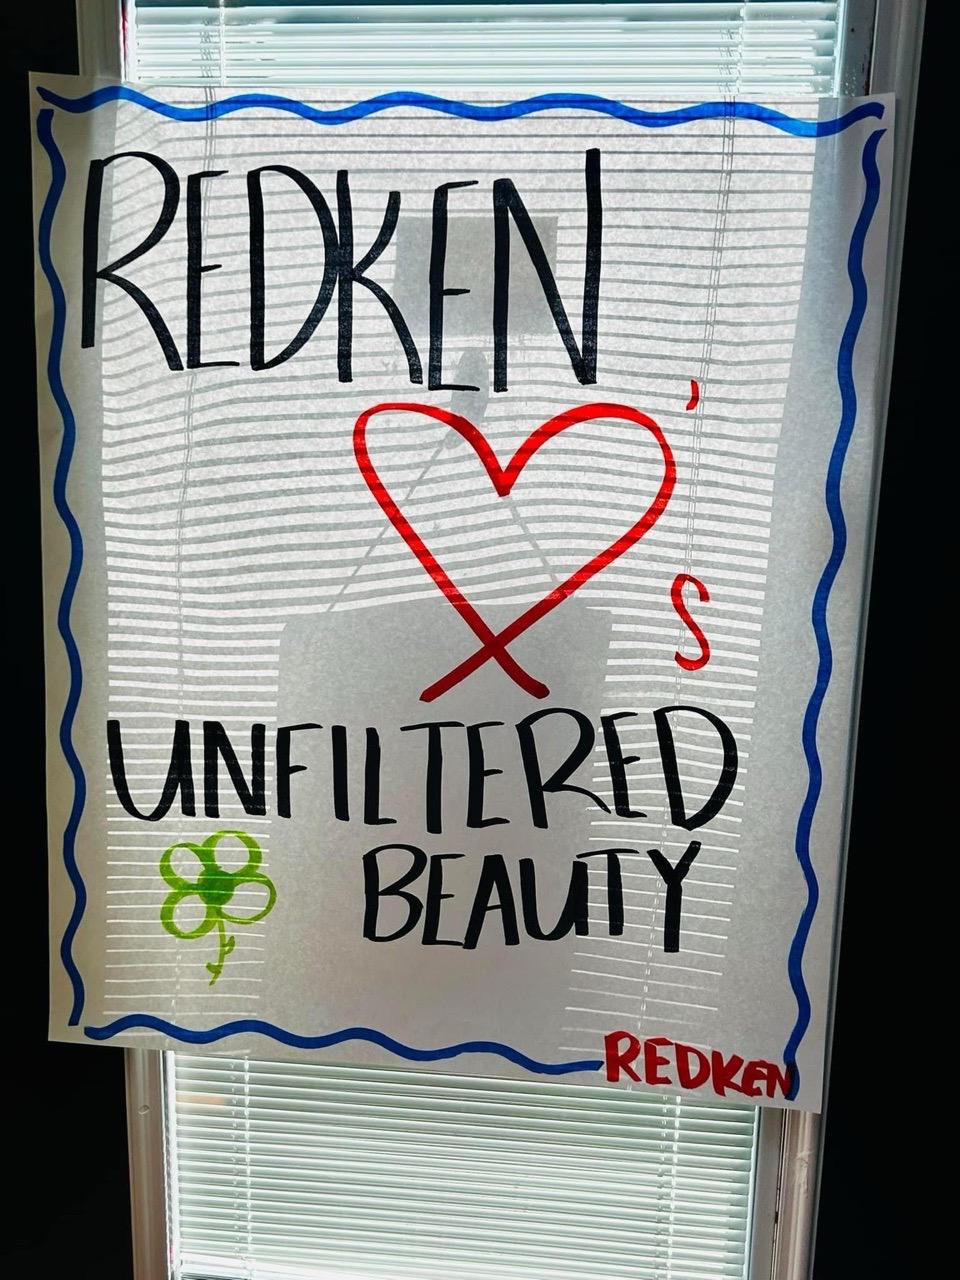 REDKEN
♥'s
UNFILTERED
BEAUTY
REDKEN